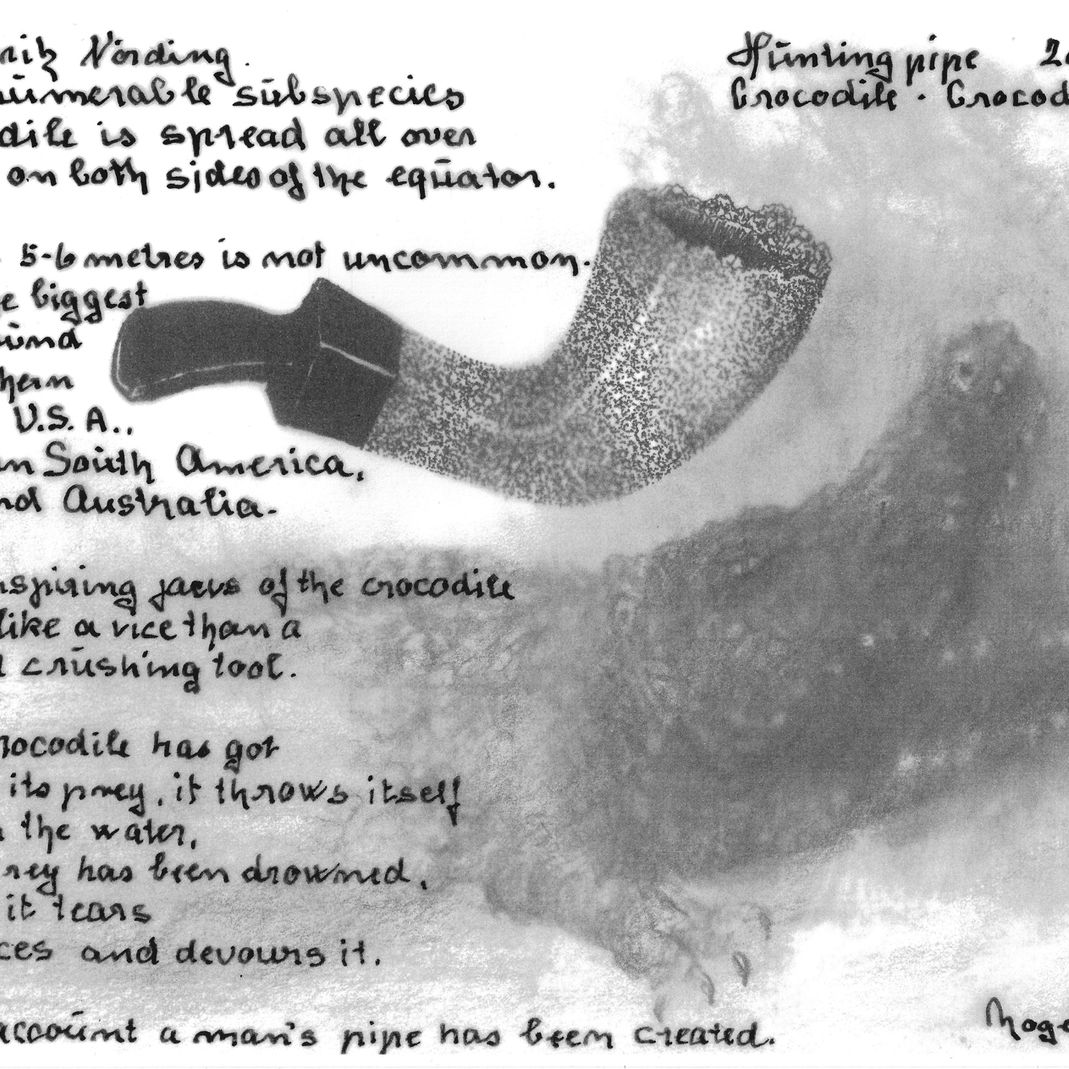 Nording.
Hunting pipe
Crocodile . Crocod
umerable subspecies
dile is spread all over
on both sides of the equator.
5-6 metres is not uncommon.
e biggest
und
hern
U.S.A.,
n South America,
nd Australia.
nspiring jaws of the crocodile
like a vice than a
l crushing tool.
rocodile has got
its prey, it throws itself
n the water,
rey has been drowned,
it tears
ces and devours it.
account a man's pipe has been created.